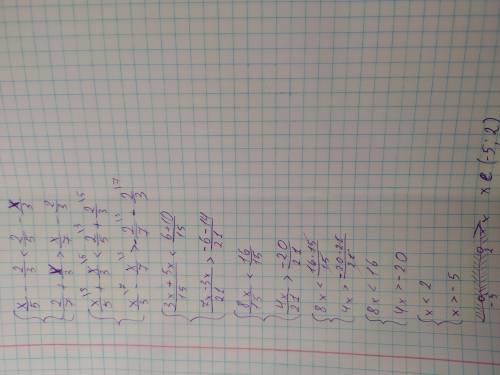 x/5 - 2/3 < 2/5 - x/3
2/7 + x/3 > x/7 - 2/3
x/5 + x/3 < 2/5 + 2/3
x/3 - x/7 > -2/7 - 2/3
(3x+5x)/15 < (6+10)/15
(7x-3x)/21 > (-6-14)/21
8x/15 < 16/15
4x/21 > -20/21
8x < 16·15/15
4x > -20·21/21
8x < 16
4x > -20
x < 2
x > -5
-5 2 x x ∈ (-5; 2)